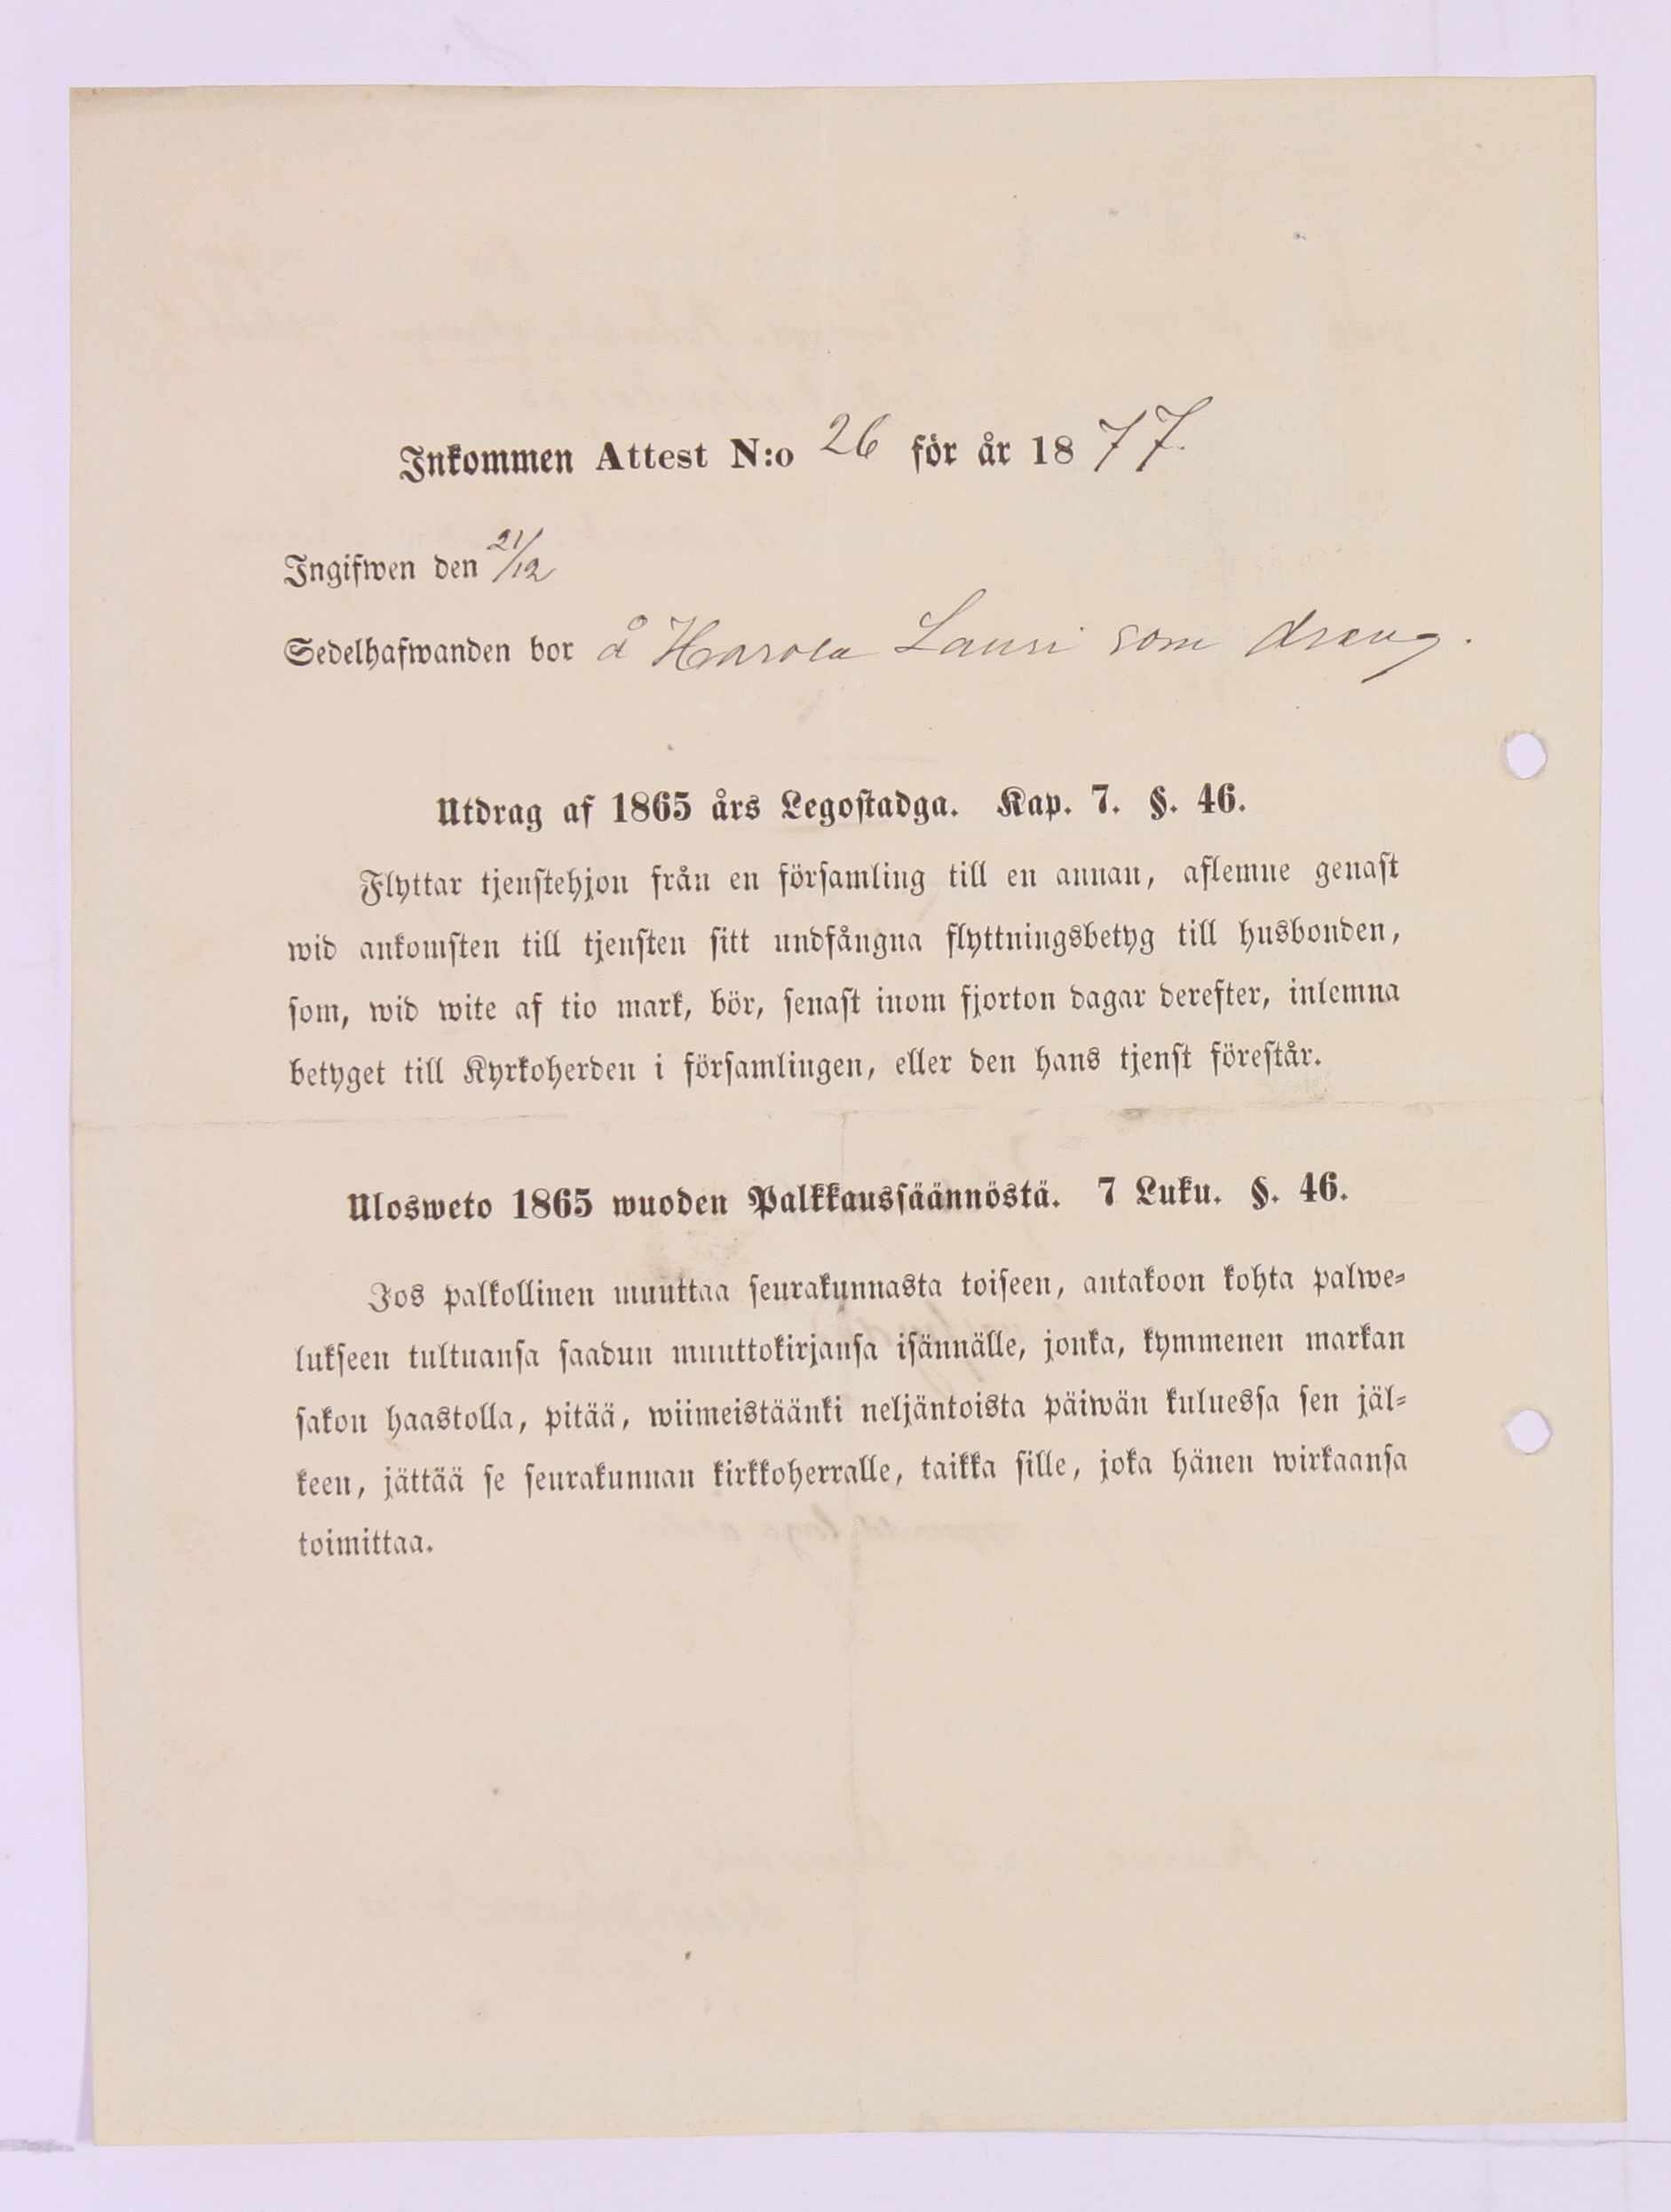 Inkommen Attest N:o 26 för år 1877.
Ingifwen den 21/12
Sedelhafwanden bor å Harola Lauri som dräng.
Utdrag af 1865 års Legostadga. Kap. 7. §. 46.
Flyttar tjenstehjon från en församling till en annan, aflemne genast
wid ankomsten till tjensten sitt undfångna flyttningsbetyg till husbonden,
som, wid wite af tio mark, bör, senast inom fjorton dagar derefter, inlemna
betyget till Kyrkoherden i församlingen, eller den hans tjenst förestår.
Ulosweto 1865 wuoden Palkkaussäännöstä. 7 Luku. §. 46.
Jos palkollinen muuttaa seurakunnasta toiseen, antakoon kohta palwe-
lukseen tultuansa saadun muuttokirjansa isännälle, jonka, kymmenen markan
sakon haastolla, pitää, wiimeistäänki neljäntoista päiwän kuluessa sen jäl-
keen, jättää se seurakunnan kirkkoherralle, taikka sille, joka hänen wirkaansa
toimittaa.